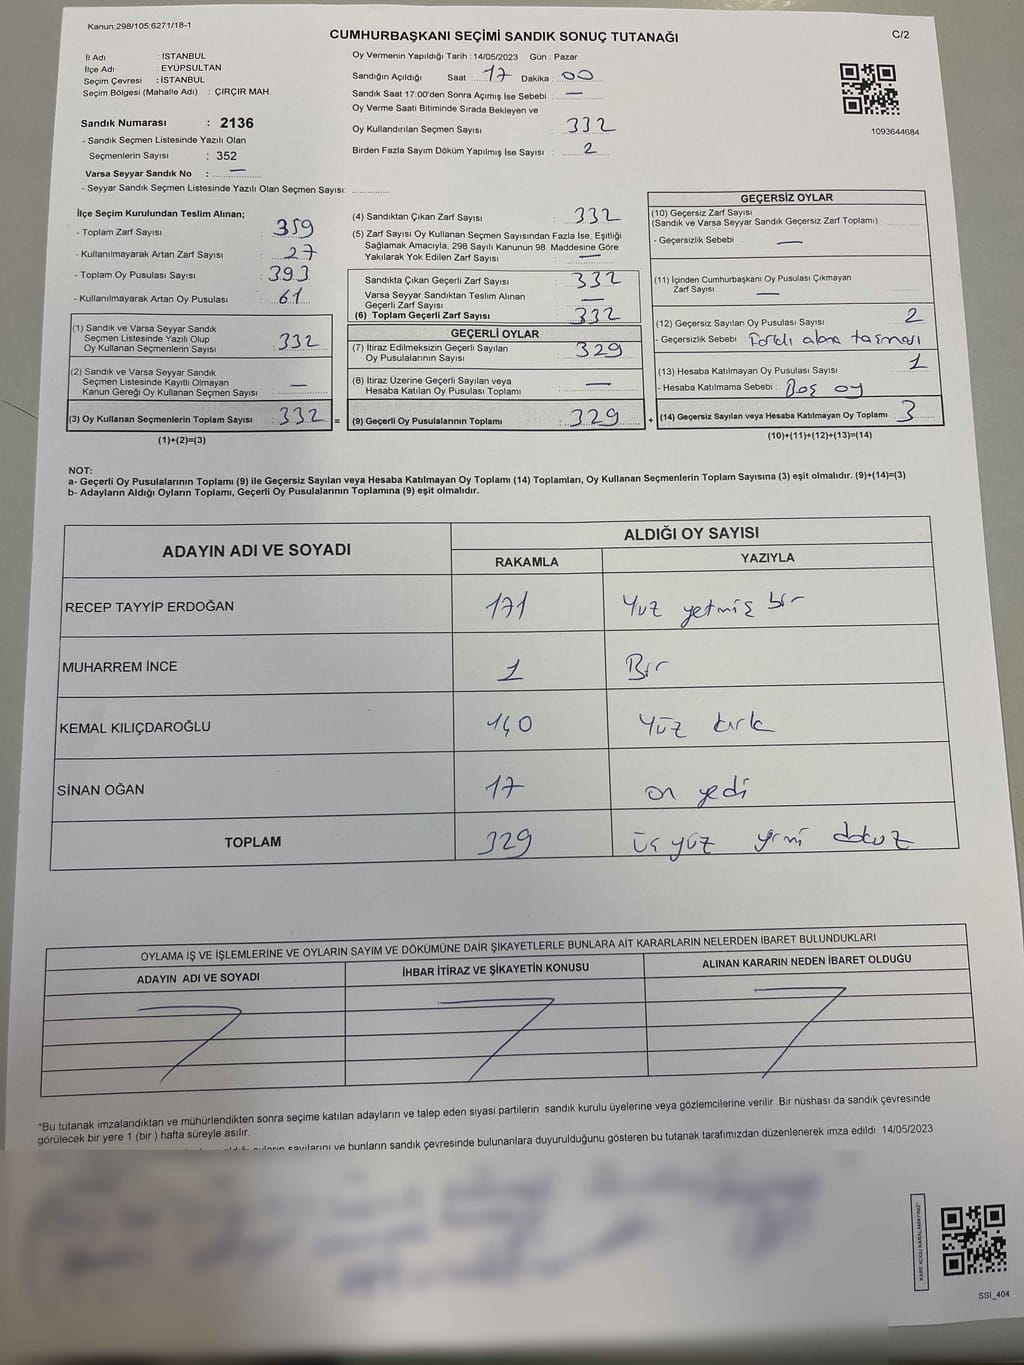 Kanun:298/105,6271/18-1
CUMHURBAŞKANI SEÇİMİ SANDIK SONUÇ TUTANAĞI
C/2
İl Adı : İSTANBUL
İlçe Adı : EYÜPSULTAN
Seçim Çevresi : İSTANBUL
Seçim Bölgesi (Mahalle Adı) : ÇIRÇIR MAH.
Sandık Numarası : 2136
- Sandık Seçmen Listesinde Yazılı Olan
Seçmenlerin Sayısı : 352
Varsa Seyyar Sandık No : —
- Seyyar Sandık Seçmen Listesinde Yazılı Olan Seçmen Sayısı: ............
Oy Vermenin Yapıldığı Tarih : 14/05/2023 Gün : Pazar
Sandığın Açıldığı Saat : 17 Dakika : 00
Sandık Saat 17:00'den Sonra Açımış İse Sebebi : —
Oy Verme Saati Bitiminde Sırada Bekleyen ve
Oy Kullandırılan Seçmen Sayısı : 332
Birden Fazla Sayım Döküm Yapılmış İse Sayısı : 2
1093644684
İlçe Seçim Kurulundan Teslim Alınan;
- Toplam Zarf Sayısı : 359
- Kullanılmayarak Artan Zarf Sayısı : 27
- Toplam Oy Pusulası Sayısı : 393
- Kullanılmayarak Artan Oy Pusulası : 61
(1) Sandık ve Varsa Seyyar Sandık
Seçmen Listesinde Yazılı Olup
Oy Kullanan Seçmenlerin Sayısı : 332
(2) Sandık ve Varsa Seyyar Sandık
Seçmen Listesinde Kayıtlı Olmayan
Kanun Gereği Oy Kullanan Seçmen Sayısı : —
(3) Oy Kullanan Seçmenlerin Toplam Sayısı : 332 =
(1)+(2)=(3)
(4) Sandıktan Çıkan Zarf Sayısı : 332
(5) Zarf Sayısı Oy Kullanan Seçmen Sayısından Fazla İse, Eşitliği
Sağlamak Amacıyla, 298 Sayılı Kanunun 98. Maddesine Göre
Yakılarak Yok Edilen Zarf Sayısı : —
Sandıkta Çıkan Geçerli Zarf Sayısı : 332
Varsa Seyyar Sandıktan Teslim Alınan
Geçerli Zarf Sayısı : —
(6) Toplam Geçerli Zarf Sayısı : 332
GEÇERLİ OYLAR
(7) İtiraz Edilmeksizin Geçerli Sayılan
Oy Pusulalarının Sayısı : 329
(8) İtiraz Üzerine Geçerli Sayılan veya
Hesaba Katılan Oy Pusulası Toplamı : —
(9) Geçerli Oy Pusulalarının Toplamı : 329 +
GEÇERSİZ OYLAR
(10) Geçersiz Zarf Sayısı
(Sandık ve Varsa Seyyar Sandık Geçersiz Zarf Toplamı)
- Geçersizlik Sebebi : —
(11) İçinden Cumhurbaşkanı Oy Pusulası Çıkmayan
Zarf Sayısı : —
(12) Geçersiz Sayılan Oy Pusulası Sayısı : 2
- Geçersizlik Sebebi : Farklı alana taşması
(13) Hesaba Katılmayan Oy Pusulası Sayısı : 1
- Hesaba Katılmama Sebebi : Boş oy
(14) Geçersiz Sayılan veya Hesaba Katılmayan Oy Toplamı : 3
(10)+(11)+(12)+(13)=(14)
NOT:
a- Geçerli Oy Pusulalarının Toplamı (9) ile Geçersiz Sayılan veya Hesaba Katılmayan Oy Toplamı (14) Toplamları, Oy Kullanan Seçmenlerin Toplam Sayısına (3) eşit olmalıdır. (9)+(14)=(3)
b- Adayların Aldığı Oyların Toplamı, Geçerli Oy Pusulalarının Toplamına (9) eşit olmalıdır.
ADAYIN ADI VE SOYADI
ALDIĞI OY SAYISI
RAKAMLA YAZIYLA
RECEP TAYYİP ERDOĞAN 171 Yüz yetmiş bir
MUHARREM İNCE 1 Bir
KEMAL KILIÇDAROĞLU 140 Yüz kırk
SİNAN OĞAN 17 on yedi
TOPLAM 329 üç yüz yirmi dokuz
OYLAMA İŞ VE İŞLEMLERİNE VE OYLARIN SAYIM VE DÖKÜMÜNE DAİR ŞİKAYETLERLE BUNLARA AİT KARARLARIN NELERDEN İBARET BULUNDUKLARI
ADAYIN ADI VE SOYADI İHBAR İTİRAZ VE ŞİKAYETİN KONUSU ALINAN KARARIN NEDEN İBARET OLDUĞU
*Bu tutanak imzalandıktan ve mühürlendikten sonra seçime katılan adayların ve talep eden siyasi partilerin sandık kurulu üyelerine veya gözlemcilerine verilir .Bir nüshası da sandık çevresinde
görülecek bir yere 1 (bir ) hafta süreyle asılır.
sayılarını ve bunların sandık çevresinde bulunanlara duyurulduğunu gösteren bu tutanak tarafımızdan düzenlenerek imza edildi. 14/05/2023
KARE KODU KARALAMAYINIZ!
SSI_404